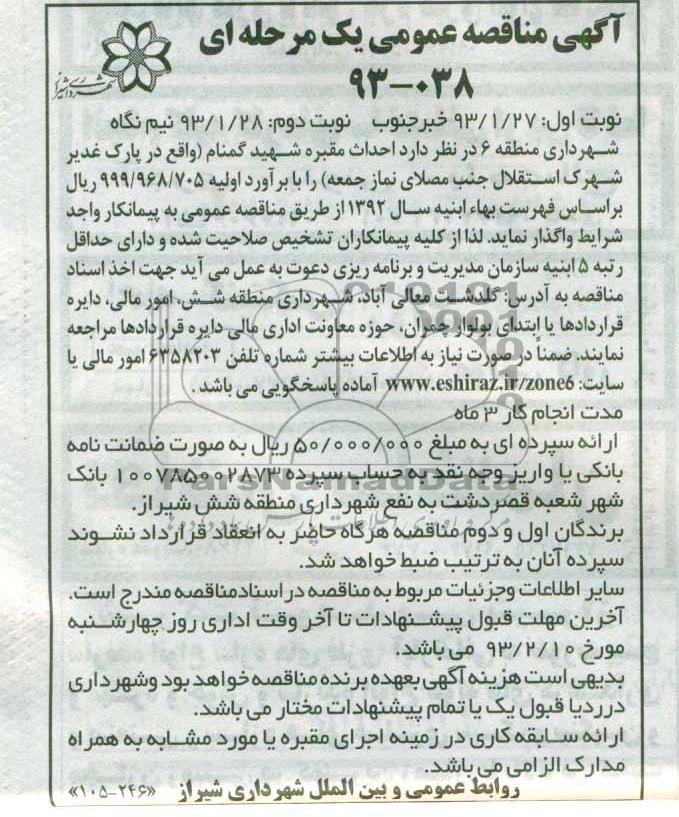 آگهی مناقصه عمومی یک مرحله ای
۹۳-۰۳۸
شهرداری شیراز
نوبت اول: ۹۳/۱/۲۷ خبر جنوب نوبت دوم: ۹۳/۱/۲۸ نیم نگاه
شهرداری منطقه ۶ در نظر دارد احداث مقبره شهید گمنام (واقع در پارک غدیر
شهرک استقلال جنب مصلای نماز جمعه) را با برآورد اولیه ۹۹۹/۹۶۸/۷۰۵ ریال
براساس فهرست بهاء ابنیه سال ۱۳۹۲ از طریق مناقصه عمومی به پیمانکار واجد
شرایط واگذار نماید. لذا از کلیه پیمانکاران تشخیص صلاحیت شده و دارای حداقل
رتبه ۵ ابنیه سازمان مدیریت و برنامه ریزی دعوت به عمل می آید جهت اخذ اسناد
مناقصه به آدرس: گلدشت معالی آباد، شهرداری منطقه شش، امور مالی، دایره
قراردادها یا ابتدای بولوار چمران، حوزه معاونت اداری مالی دایره قراردادها مراجعه
نمایند. ضمناً در صورت نیاز به اطلاعات بیشتر شماره تلفن ۶۳۵۸۲۰۳ امور مالی یا
سایت: www.eshiraz.ir/zone6 آماده پاسخگویی می باشد.
مدت انجام کار ۳ ماه
ارائه سپرده ای به مبلغ ۵۰/۰۰۰/۰۰۰ ریال به صورت ضمانت نامه
بانکی یا واریز وجه نقد به حساب سپرده ۱۰۰۷۸۵۰۰۲۸۷۳ بانک
شهر شعبه قصردشت به نفع شهرداری منطقه شش شیراز.
برندگان اول و دوم مناقصه هرگاه حاضر به انعقاد قرارداد نشوند
سپرده آنان به ترتیب ضبط خواهد شد.
سایر اطلاعات وجزئیات مربوط به مناقصه در اسناد مناقصه مندرج است.
آخرین مهلت قبول پیشنهادات تا آخر وقت اداری روز چهارشنبه
مورخ ۹۳/۲/۱۰ می باشد.
بدیهی است هزینه آگهی بعهده برنده مناقصه خواهد بود وشهرداری
درردیا قبول یک یا تمام پیشنهادات مختار می باشد.
ارائه سابقه کاری در زمینه اجرای مقبره یا مورد مشابه به همراه
مدارک الزامی می باشد.
روابط عمومی و بین الملل شهرداری شیراز «۱۰۵-۲۴۶»
ParsNamadData